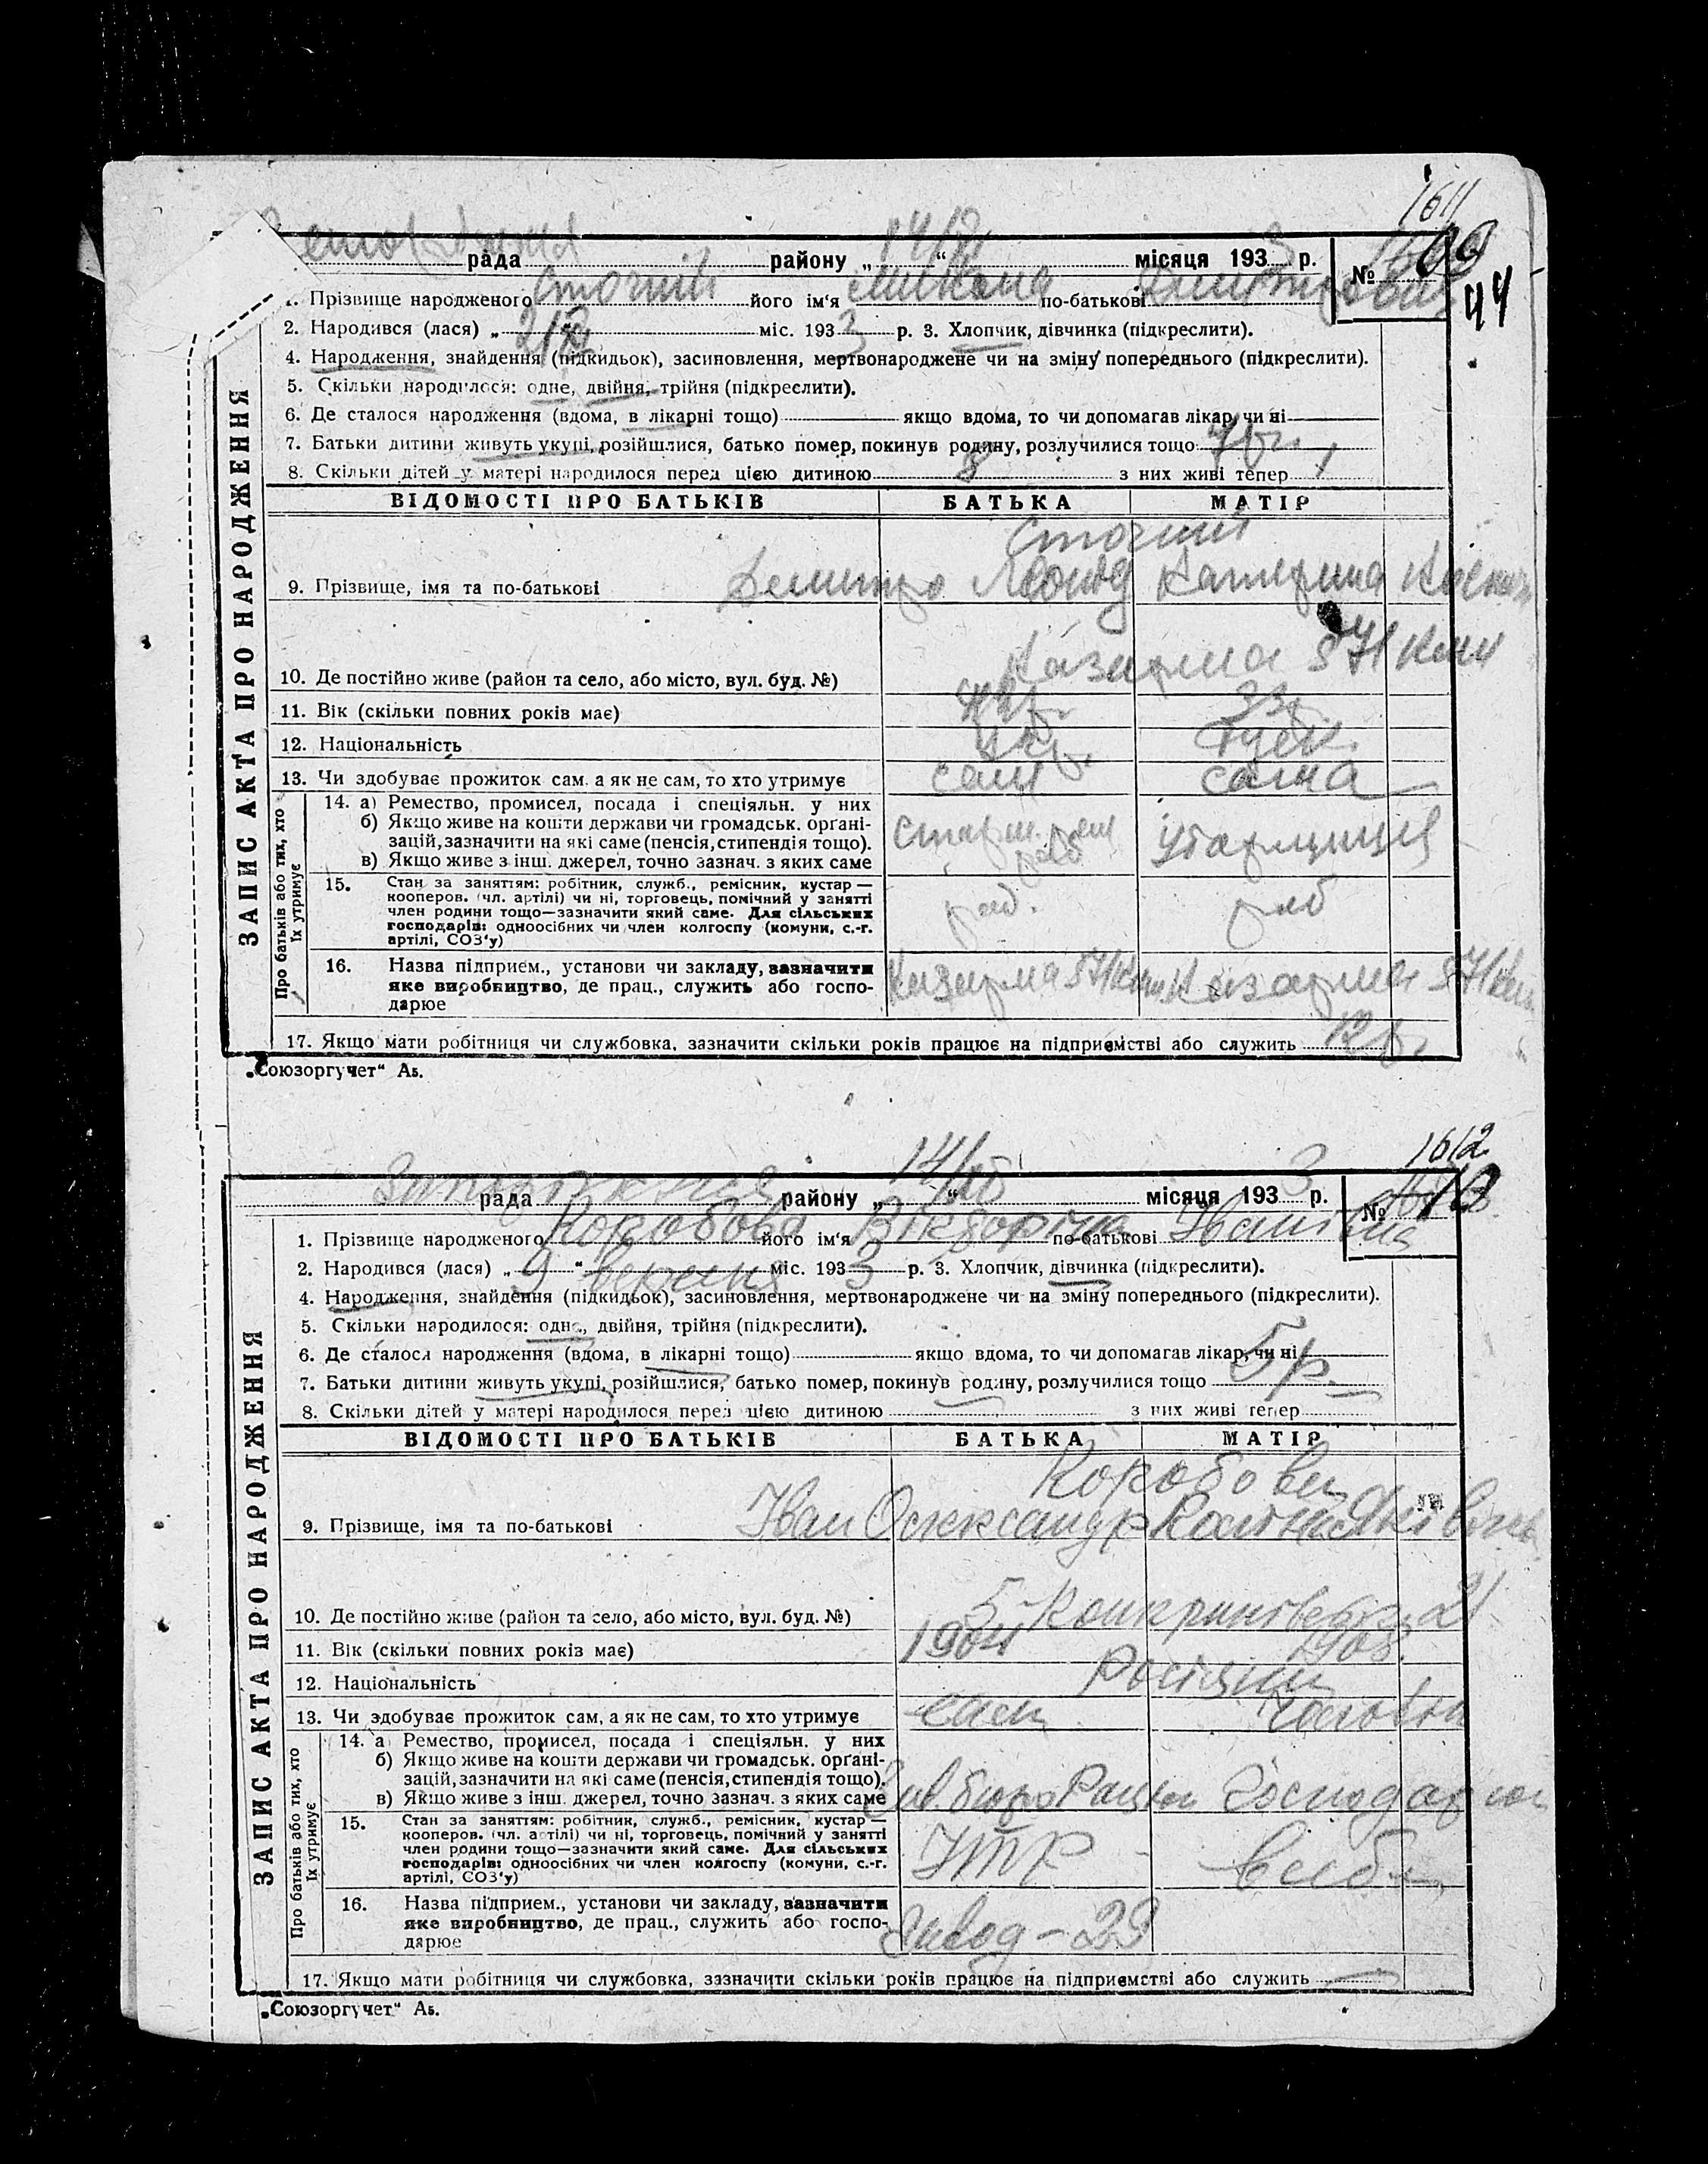 1611
рада району „ “ місяця 1933 р. №
44
1. Прізвище народженого Сточний його ім'я Микола по-батькові Дмитрович
2. Народився (лася) „ “ міс. 1933 р. 3. Хлопчик, дівчинка (підкреслити).
4. Народження, знайдення (підкидьок), засиновлення, мертвонароджене чи на зміну попереднього (підкреслити).
5. Скільки народилося: одне, двійня, трійня (підкреслити).
6. Де сталося народження (вдома, в лікарні тощо) якщо вдома, то чи допомагав лікар, чи ні
7. Батьки дитини живуть укупі, розійшлися, батько помер, покинув родину, розлучилися тощо
8. Скільки дітей у матері народилося перед цією дитиною 8 з них живі тепер 1
ВІДОМОСТІ ПРО БАТЬКІВ БАТЬКА МАТІР
Сточний
9. Прізвище, імя та по-батькові Дмитро Леонид Катерина
Казарма 571 км
10. Де постійно живе (район та село, або місто, вул. буд. №)
11. Вік (скільки повних років має) 33
12. Національність Укр. Руск.
13. Чи здобуває прожиток сам, а як не сам, то хто утримує сам сама
ЗАПИС АКТА ПРО НАРОДЖЕННЯ
Про батьків або тих, хто їх утримує
14. а) Ремество, промисел, посада і спеціяльн. у них
б) Якщо живе на кошти держави чи громадськ. органі-
зацій, зазначити на які саме (пенсія, стипендія тощо).
в) Якщо живе з інш. джерел, точно зазнач. з яких саме
Старш. рем раб Убарщиця
15. Стан за заняттям: робітник, служб., ремісник, кустар—
кооперов. (чл. артілі) чи ні, торговець, помічний у занятті
член родини тощо—зазначити який саме. Для сільських
господарів: одноосібних чи член колгоспу (комуни, с.-г.
артілі, СОЗ'у)
раб. раб
16. Назва підприєм., установи чи закладу, зазначити
яке виробництво, де прац., служить або госпо-
дарює
Казарма 571 км Казарма 571 км
17. Якщо мати робітниця чи службовка, зазначити скільки років працює на підприємстві або служить 12 р.
„Союзоргучет“ А5.
1612
Запоріжжя 14/ІХ 3
рада району „ “ місяця 193 р. №
1. Прізвище народженого Коробова його ім'я Вікторіна по-батькові Іванівна
2. Народився (лася) „ 9 “ вересня міс. 1933 р. 3. Хлопчик, дівчинка (підкреслити).
4. Народження, знайдення (підкидьок), засиновлення, мертвонароджене чи на зміну попереднього (підкреслити).
5. Скільки народилося: одне, двійня, трійня (підкреслити).
6. Де сталося народження (вдома, в лікарні тощо) якщо вдома, то чи допомагав лікар, чи ні
7. Батьки дитини живуть укупі, розійшлися, батько помер, покинув родину, розлучилися тощо 5 р.
8. Скільки дітей у матері народилося перед цією дитиною з них живі тепер
ВІДОМОСТІ ПРО БАТЬКІВ БАТЬКА МАТІР
Коробови
9. Прізвище, імя та по-батькові Іван Олександр
10. Де постійно живе (район та село, або місто, вул. буд. №) 21
11. Вік (скільки повних років має) 1904 1908
12. Національність Росіяни
13. Чи здобуває прожиток сам, а як не сам, то хто утримує сам Чоловік
ЗАПИС АКТА ПРО НАРОДЖЕННЯ
Про батьків або тих, хто їх утримує
14. а Ремество, промисел, посада і спеціяльн. у них
б) Якщо живе на кошти держави чи громадськ. органі-
зацій, зазначити на які саме (пенсія, стипендія тощо).
в) Якщо живе з інш. джерел, точно зазнач. з яких саме
Зав. бюро Господарює
15. Стан за заняттям: робітник, служб., ремісник, кустар—
кооперов. (чл. артілі) чи ні, торговець, помічний у занятті
член родини тощо—зазначити який саме. Для сільських
господарів: одноосібних чи член колгоспу (комуни, с.-г.
артілі, СОЗ'у)
ІТР
16. Назва підприєм., установи чи закладу, зазначити
яке виробництво, де прац., служить або госпо-
дарює
Завод-29
17. Якщо мати робітниця чи службовка, зазначити скільки років працює на підприємстві або служить
„Союзоргучет“ А5.